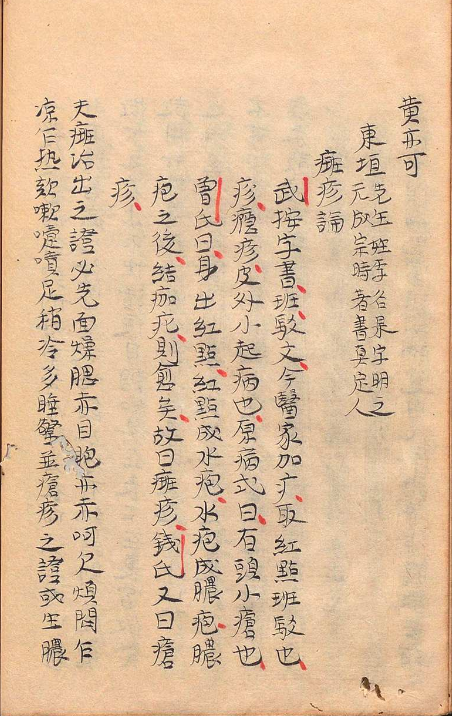 黄亦可
東垣先生姓李名杲字明之
元成宗時著書真定人
癍疹論
武按字書班駁文今醫家加疒取紅點班駁也
疹癮疹皮外小起病也原病式曰右頭小瘡也
曽氏曰身出紅點紅點成水疱水疱成膿疱膿
疱之後結痂疕則愈矣故曰癍疹錢氏又曰瘡
疹
夫癍冶出之證必先面燥腮赤目胞亦赤呵欠煩悶乍
凉乍熱欬嗽嚏噴足稍冷多睡驚並瘡疹之證或生膿